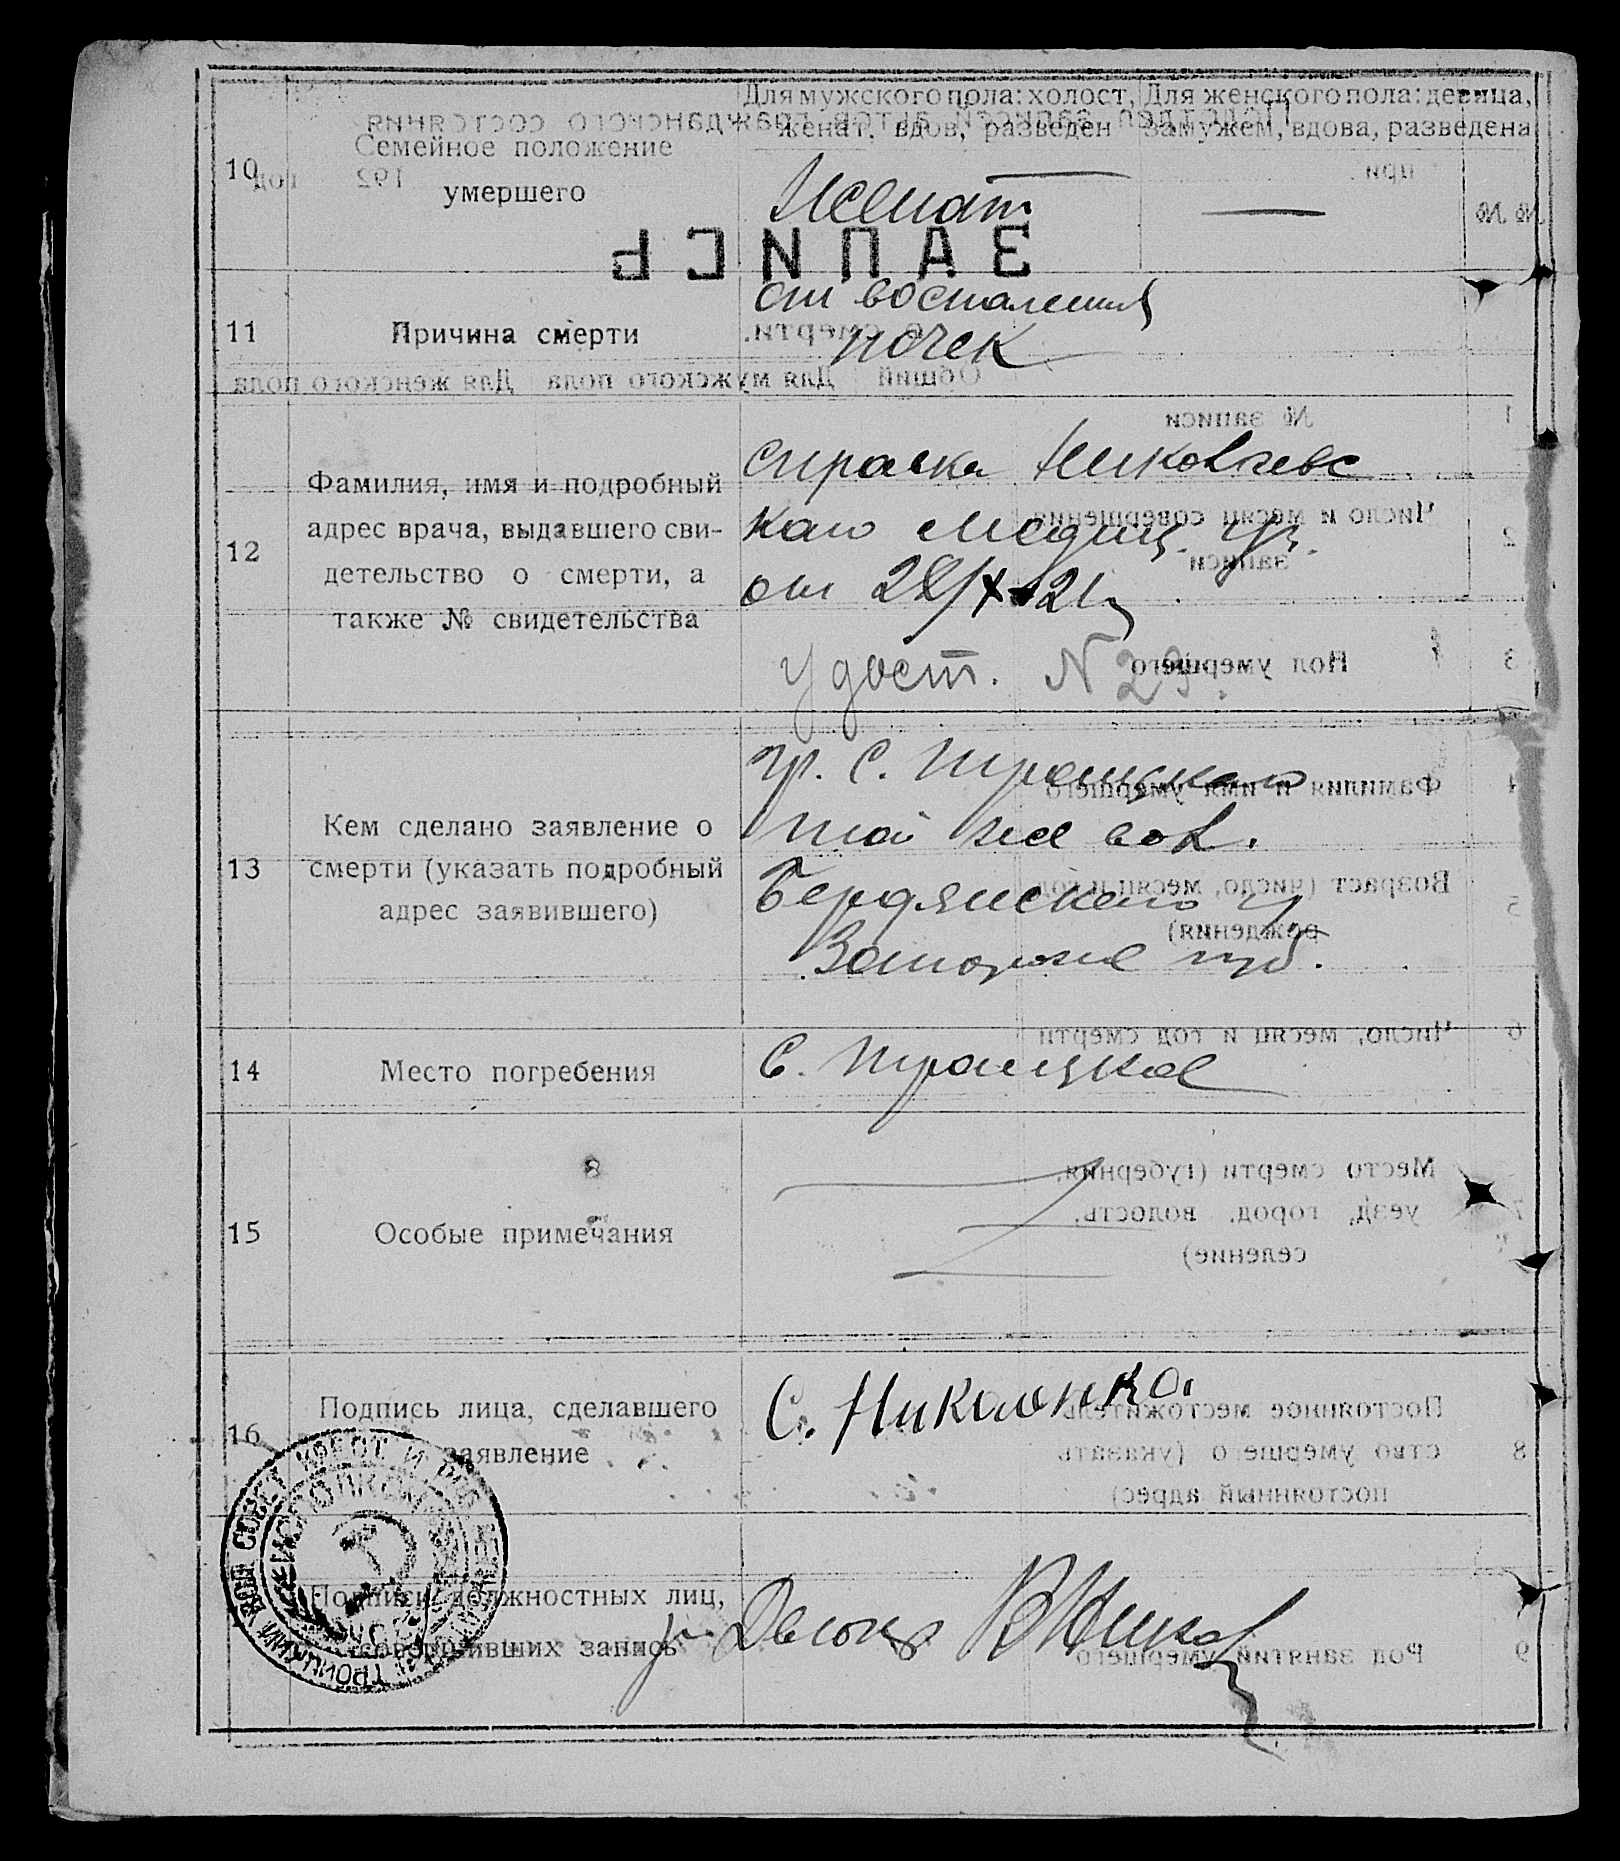 Для мужского пола: холост, женат, вдов, разведен
Для женского пола: девица, замужем, вдова, разведена
10
Семейное положение
умершего
Женат
—
11
Причина смерти
от воспаления
почек
12
Фамилия, имя и подробный
адрес врача, выдавшего сви-
детельство о смерти, а
также № свидетельства
справка Николаевс
каго Медиц.
от 28/X 21
удост. N 29.
13
Кем сделано заявление о
смерти (указать подробный
адрес заявившего)
гр. С. Троицкаго
той же вол.
Бердянскаго у
Запорожс губ.
14
Место погребения
С. Троицкое
15
Особые примечания
16
Подпись лица, сделавшего
заявление
С. Николенко.
Подписи должностных лиц,
совершивших запись
Делопр
ИСПОЛКОМ